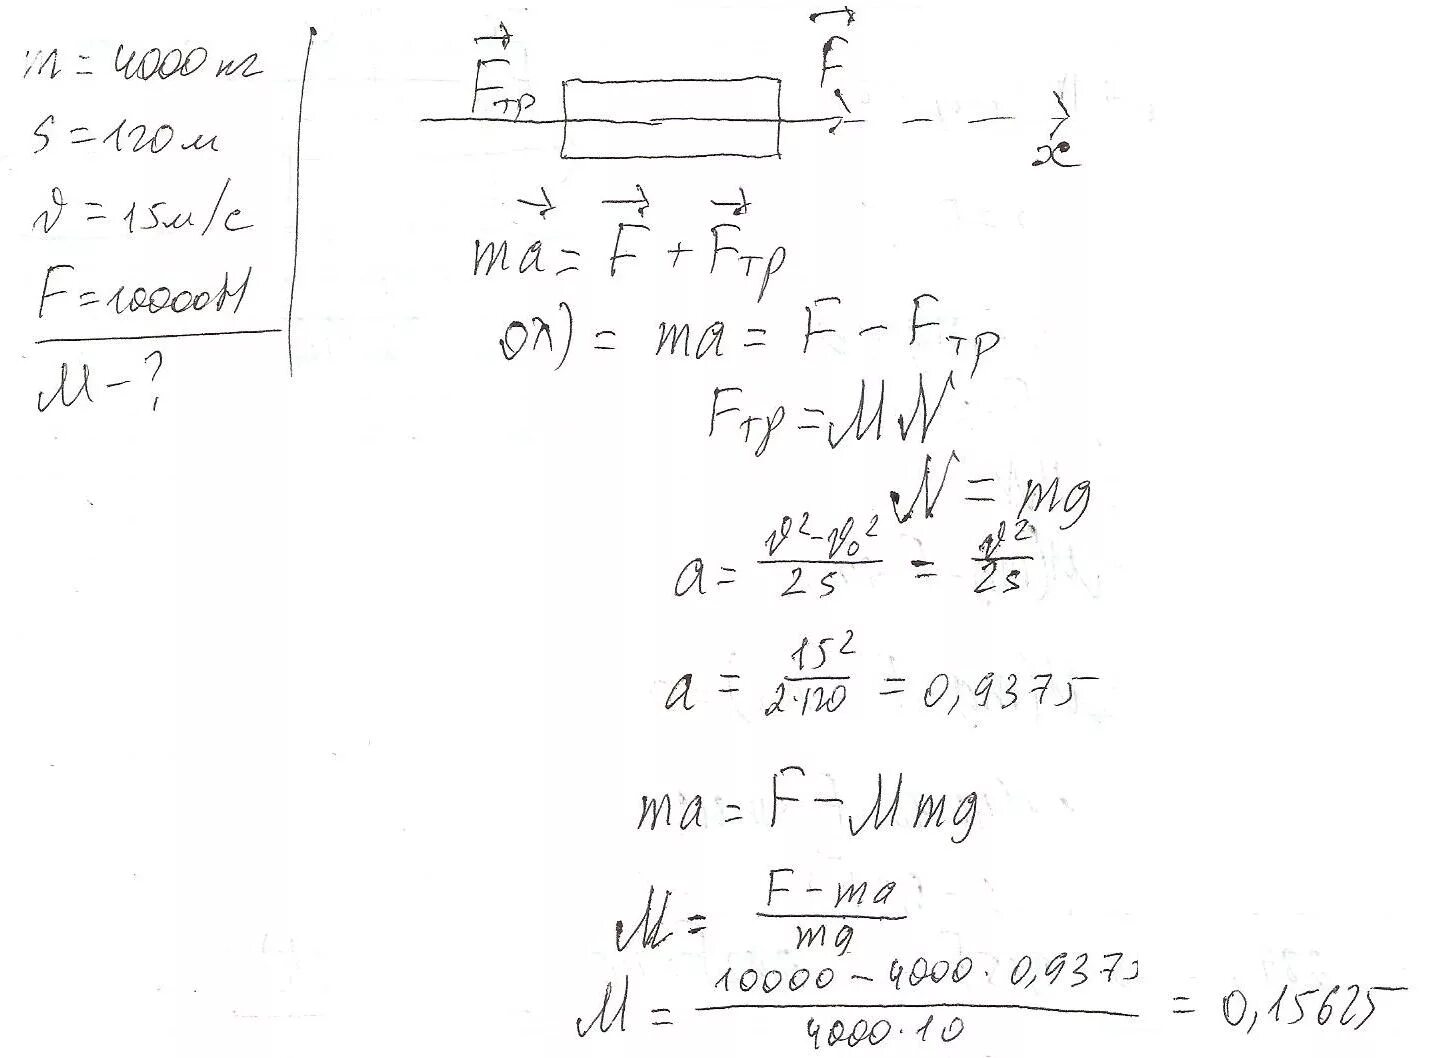 m = 4000 кг
s = 120 м
v = 15 м/с
F = 10000 Н
μ - ?
Fтр F
x
ma = F + Fтр
ox) = ma = F - Fтр
Fтр = μN
N = mg
a = (v² - v₀²)/(2s) = v²/(2s)
a = 15²/(2·120) = 0,9375
ma = F - μmg
μ = (F - ma)/(mg)
μ = (10000 - 4000 · 0,9375)/(4000·10) = 0,15625